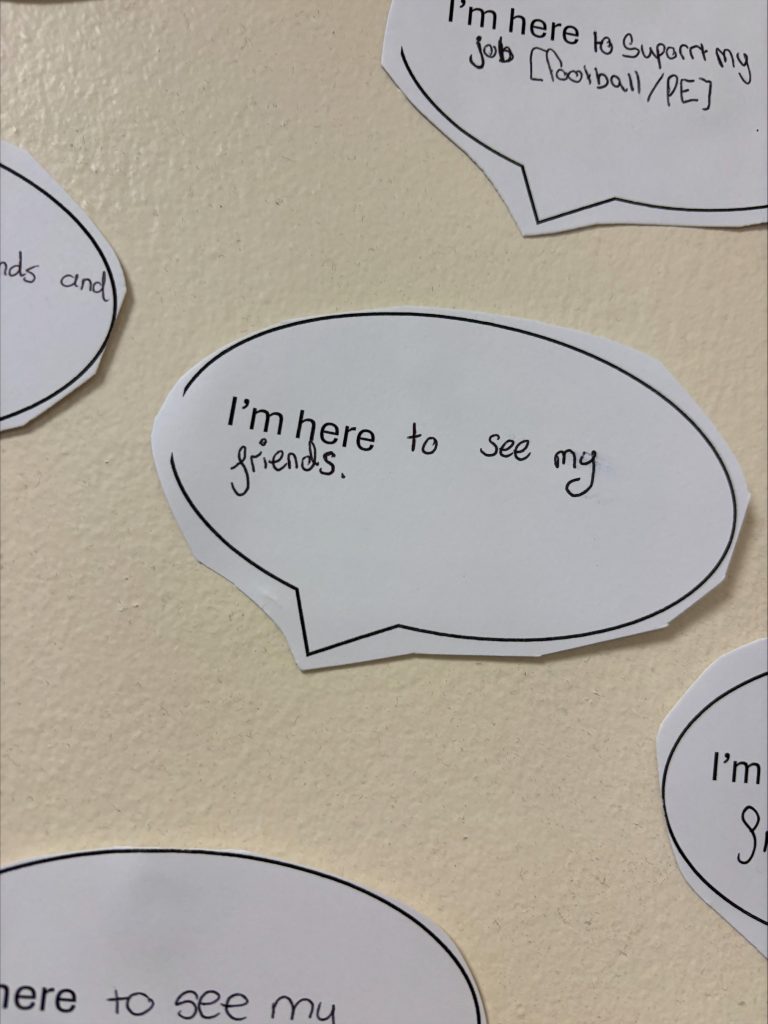 I'm here to Suporrt my
job [football/PE]
nds and
I'm here to see my
friends.
I'm
here to see my